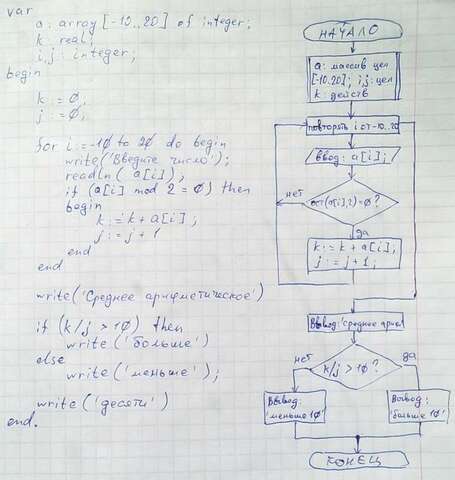 var
a: array[-10..20] of integer;
k: real;
i,j: integer;
begin
k:=0;
j:=0;
for i:=-10 to 20 do begin
write('Введите число');
readln( a[i]);
if (a[i] mod 2=0) then
begin
k:=k+a[i];
j:=j+1
end
end
write('Среднее арифметическое')
if (k/j>10) then
write('больше')
else
write('меньше');
write('десяти')
end.
НАЧАЛО
a: массив цел
[-10..20]; i,j: цел
k: действ
повторять i от -10..20
Ввод: a[i];
ост(a[i],2)=0?
нет
да
k:=k+a[i];
j:=j+1;
Вывод:'среднее ариф
k/j>10?
нет
да
Вывод:
'меньше 10'
Вывод:
'больше 10'
КОНЕЦ